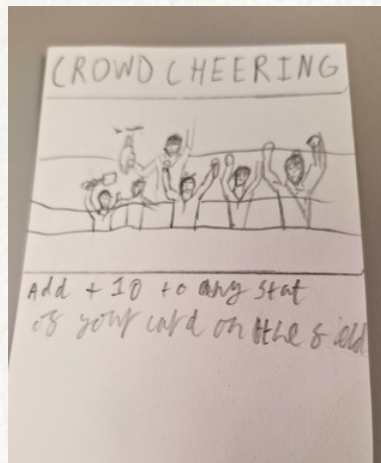 CROWD CHEERING
Add +10 to any stat
of your card on the field